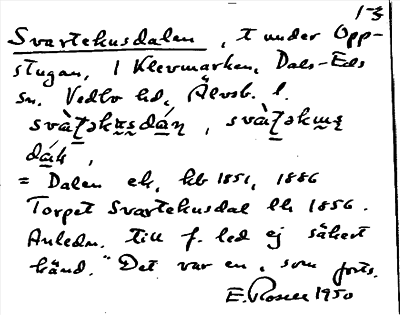 1-3
Svartehusdalen, t under Opp-
stugan, i Klevmarken, Dals-Eds
sn. Vedbo hd, Älvsb. l.
= Dalen ek, hb 1851, 1886
Torpet Svartehusdal lh 1856.
Anledn. till f. led ej säkert
känd. "Det var en, som forts.
E. Rosell 1950